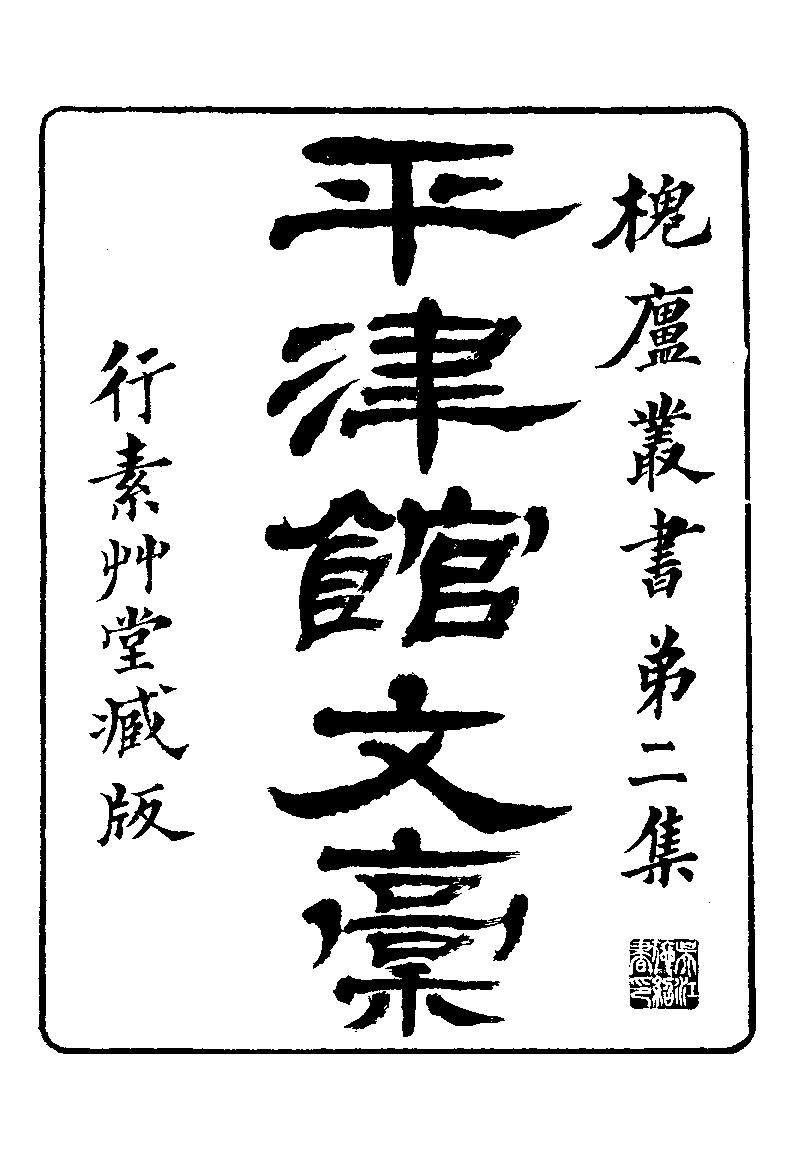 槐廬叢書弟二集
平津館文稾
行素艸堂臧版